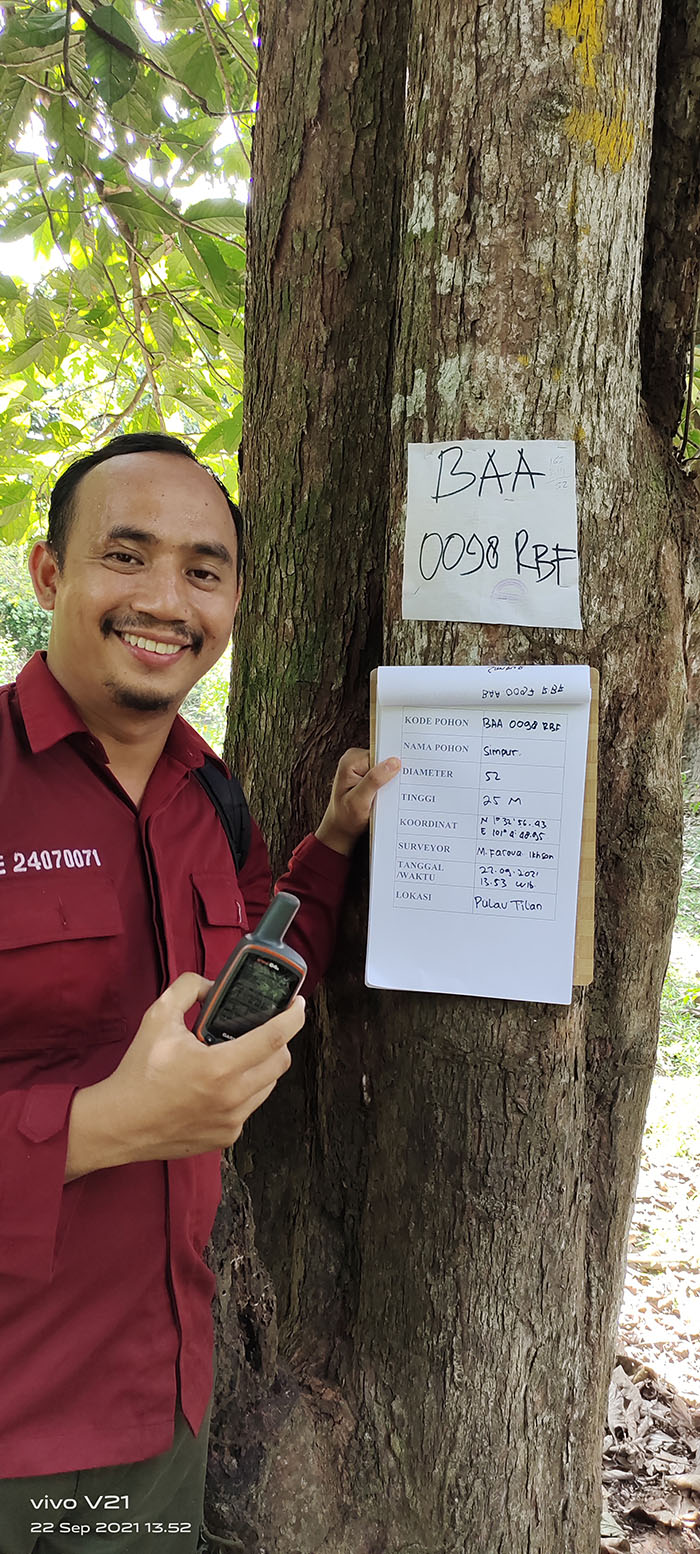 BAA
0098 RBF
KODE POHON BAA 0098 RBF
NAMA POHON Simpur.
DIAMETER 52
TINGGI 25 M
KOORDINAT N 1° 32' 56.93
E 101° 4' 48.95
SURVEYOR M. Farouq Ikhsan
TANGGAL 22.09.2021
/WAKTU 13.53 WIB
LOKASI Pulau Tilan
E 24070071
vivo V21
22 Sep 2021 13.52